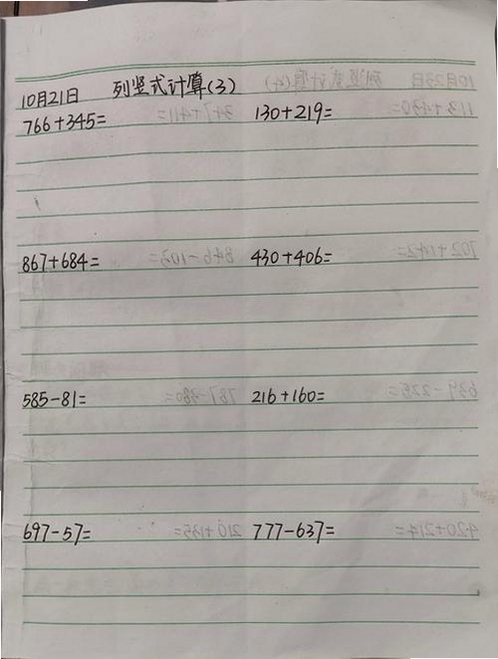 10月21日 列竖式计算(3)
766+345= 130+219=
867+684= 430+406=
585-81= 216+160=
697-57= 777-637=